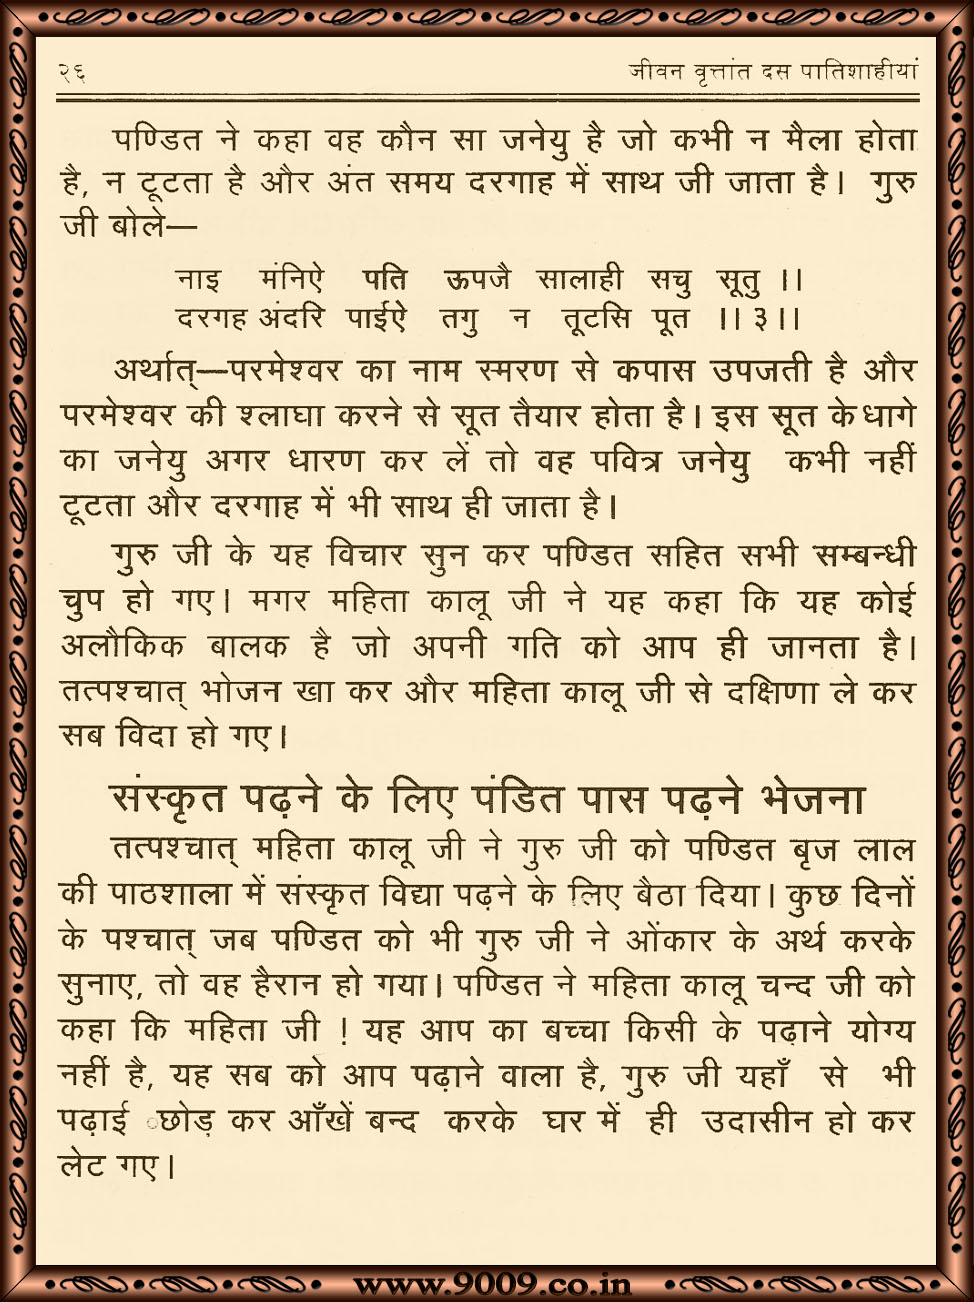 २६ जीवन वृत्तांत दस पातिशाहीयां
पण्डित ने कहा वह कौन सा जनेयु है जो कभी न मैला होता
है, न टूटता है और अंत समय दरगाह में साथ जी जाता है। गुरु
जी बोले—
नाइ मंनिऐ पति ऊपजै सालाही सचु सूतु ।।
दरगह अंदरि पाईऐ तगु न तूटसि पूत ।। ३ ।।
अर्थात्—परमेश्वर का नाम स्मरण से कपास उपजती है और
परमेश्वर की श्लाघा करने से सूत तैयार होता है। इस सूत के धागे
का जनेयु अगर धारण कर लें तो वह पवित्र जनेयु कभी नहीं
टूटता और दरगाह में भी साथ ही जाता है।
गुरु जी के यह विचार सुन कर पण्डित सहित सभी सम्बन्धी
चुप हो गए। मगर महिता कालू जी ने यह कहा कि यह कोई
अलौकिक बालक है जो अपनी गति को आप ही जानता है।
तत्पश्चात् भोजन खा कर और महिता कालू जी से दक्षिणा ले कर
सब विदा हो गए।
संस्कृत पढ़ने के लिए पंडित पास पढ़ने भेजना
तत्पश्चात् महिता कालू जी ने गुरु जी को पण्डित बृज लाल
की पाठशाला में संस्कृत विद्या पढ़ने के लिए बैठा दिया। कुछ दिनों
के पश्चात् जब पण्डित को भी गुरु जी ने ओंकार के अर्थ करके
सुनाए, तो वह हैरान हो गया। पण्डित ने महिता कालू चन्द जी को
कहा कि महिता जी ! यह आप का बच्चा किसी के पढ़ाने योग्य
नहीं है, यह सब को आप पढ़ाने वाला है, गुरु जी यहाँ से भी
पढ़ाई छोड़ कर आँखें बन्द करके घर में ही उदासीन हो कर
लेट गए।
www.9009.co.in